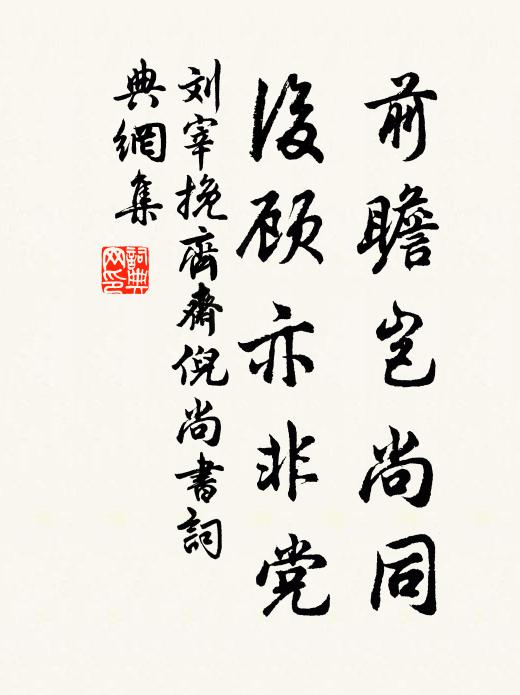 前瞻岂尚同
後顾亦非党
刘宰挽齊斋倪尚書詞
典網集
詞典
网印